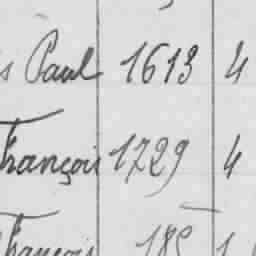 s Paul 1613 4
François 1729 4
François 185 1